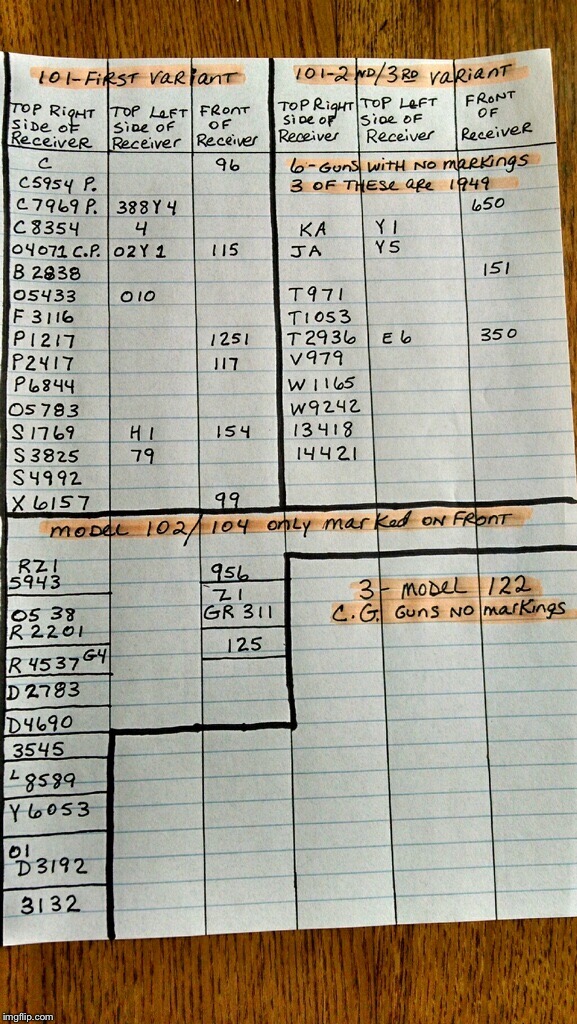 101-FIRST VARIANT
101-2ND/3RD VARIANT
TOP RIGHT SIDE OF RECEIVER
TOP LEFT SIDE OF RECEIVER
FRONT OF RECEIVER
TOP RIGHT SIDE OF RECEIVER
TOP LEFT SIDE OF RECEIVER
FRONT OF RECEIVER
C 96
C5954 P.
C7969 P. 388Y4
C8354 4
04071 C.P. 02Y1 115
B2838
05433 010
F3116
P1217 1251
P2417 117
P6844
05783
S1769 H1 154
S3825 79
S4992
X6157 99
6-GUNS WITH NO MARKINGS
3 OF THESE ARE 1949
650
KA Y1
JA Y5
151
T971
T1053
T2936 E6 350
V979
W1165
W9242
13418
14421
MODEL 102/104 ONLY MARKED ON FRONT
RZ1 956
5943 Z1
05 38 GR 311
R2201 125
R4537 G4
D2783
D4690
3545
L8589
Y6053
01
D3192
3132
3- MODEL 122
C.G. GUNS NO MARKINGS
imgflip.com